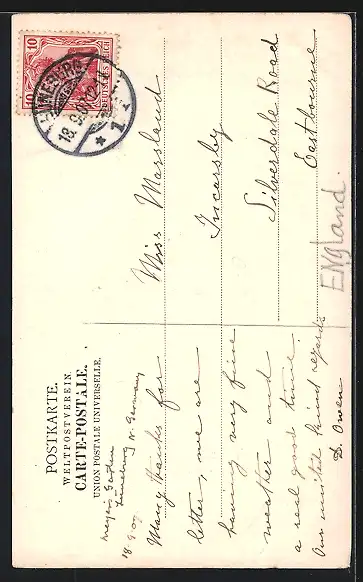 POSTKARTE.
WELTPOSTVEREIN.
CARTE-POSTALE.
UNION POSTALE UNIVERSELLE.
Meyers Garten
Lüneburg N. Germany
18.9.07
Many thanks for
letter, we are
having very fine
weather and
a real good time.
Our united kind regards
D. Owen
10
10
DEUTSCHES REICH
LÜNEBURG
18.9.07
* 1
Miss Marsland
Silverdale Road
Eastbourne
ENgland.